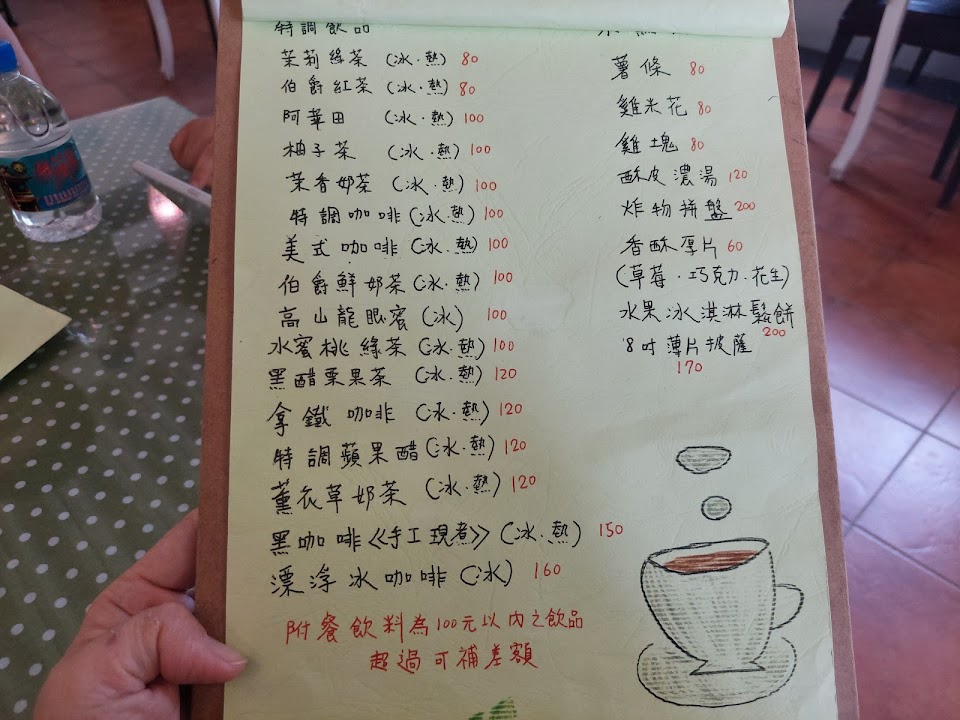 特調飲品
茉莉綠茶 (冰·熱) 80
伯爵紅茶 (冰·熱) 80
阿華田 (冰·熱) 100
柚子茶 (冰·熱) 100
茉香奶茶 (冰·熱) 100
特調咖啡 (冰·熱) 100
美式咖啡 (冰·熱) 100
伯爵鮮奶茶 (冰·熱) 100
高山龍眼蜜 (冰) 100
水蜜桃綠茶 (冰·熱) 100
黑醋栗果茶 (冰·熱) 120
拿鐵咖啡 (冰·熱) 120
特調蘋果醋 (冰·熱) 120
薰衣草奶茶 (冰·熱) 120
黑咖啡《手工現煮》(冰·熱) 150
漂浮冰咖啡 (冰) 160
附餐飲料為100元以內之飲品
超過可補差額
薯條 80
雞米花 80
雞塊 80
酥皮濃湯 120
炸物拼盤 200
香酥厚片 60
(草莓·巧克力·花生)
水果冰淇淋鬆餅
200
8吋薄片披薩
170